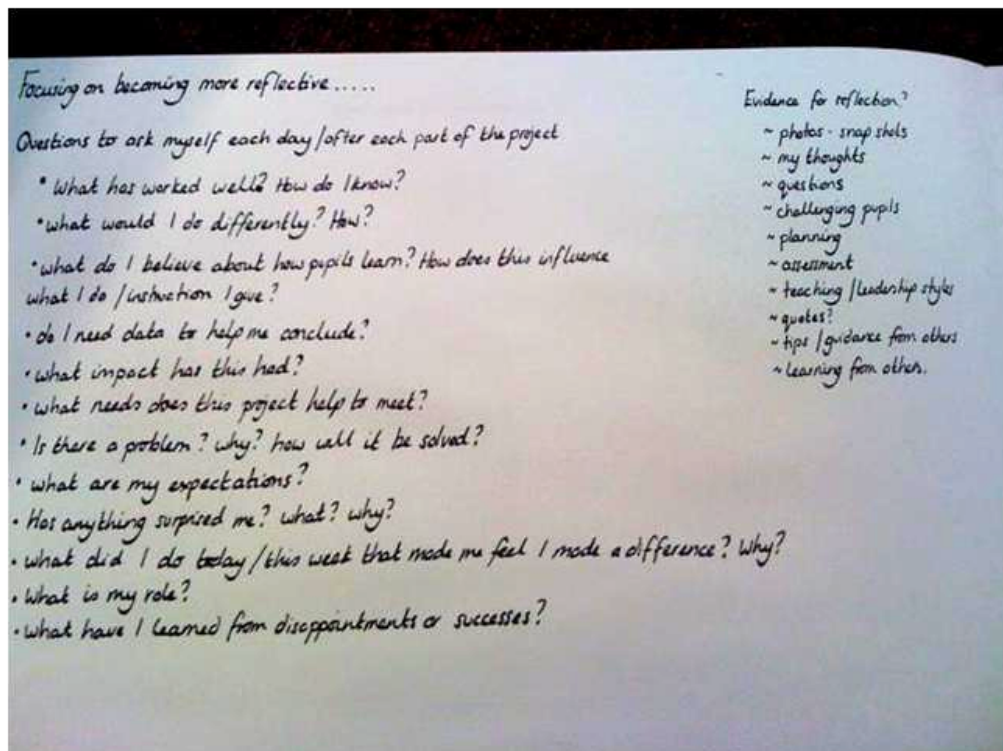 Focusing on becoming more reflective.....
Questions to ask myself each day/after each part of the project
• What has worked well? How do I know?
• what would I do differently? How?
• what do I believe about how pupils learn? How does this influence
what I do / instruction I give?
• do I need data to help me conclude?
• what impact has this had?
• what needs does this project help to meet?
• Is there a problem? why? how will it be solved?
• what are my expectations?
• Has anything surprised me? what? why?
• What did I do today/this week that made me feel I made a difference? Why?
• What is my role?
• What have I learned from disappointments or successes?
Evidence for reflection?
~ photos - snap shots
~ my thoughts
~ questions
~ challenging pupils
~ planning
~ assessment
~ teaching / leadership styles
~ quotes?
~ tips / guidance from others
~ learning from others.